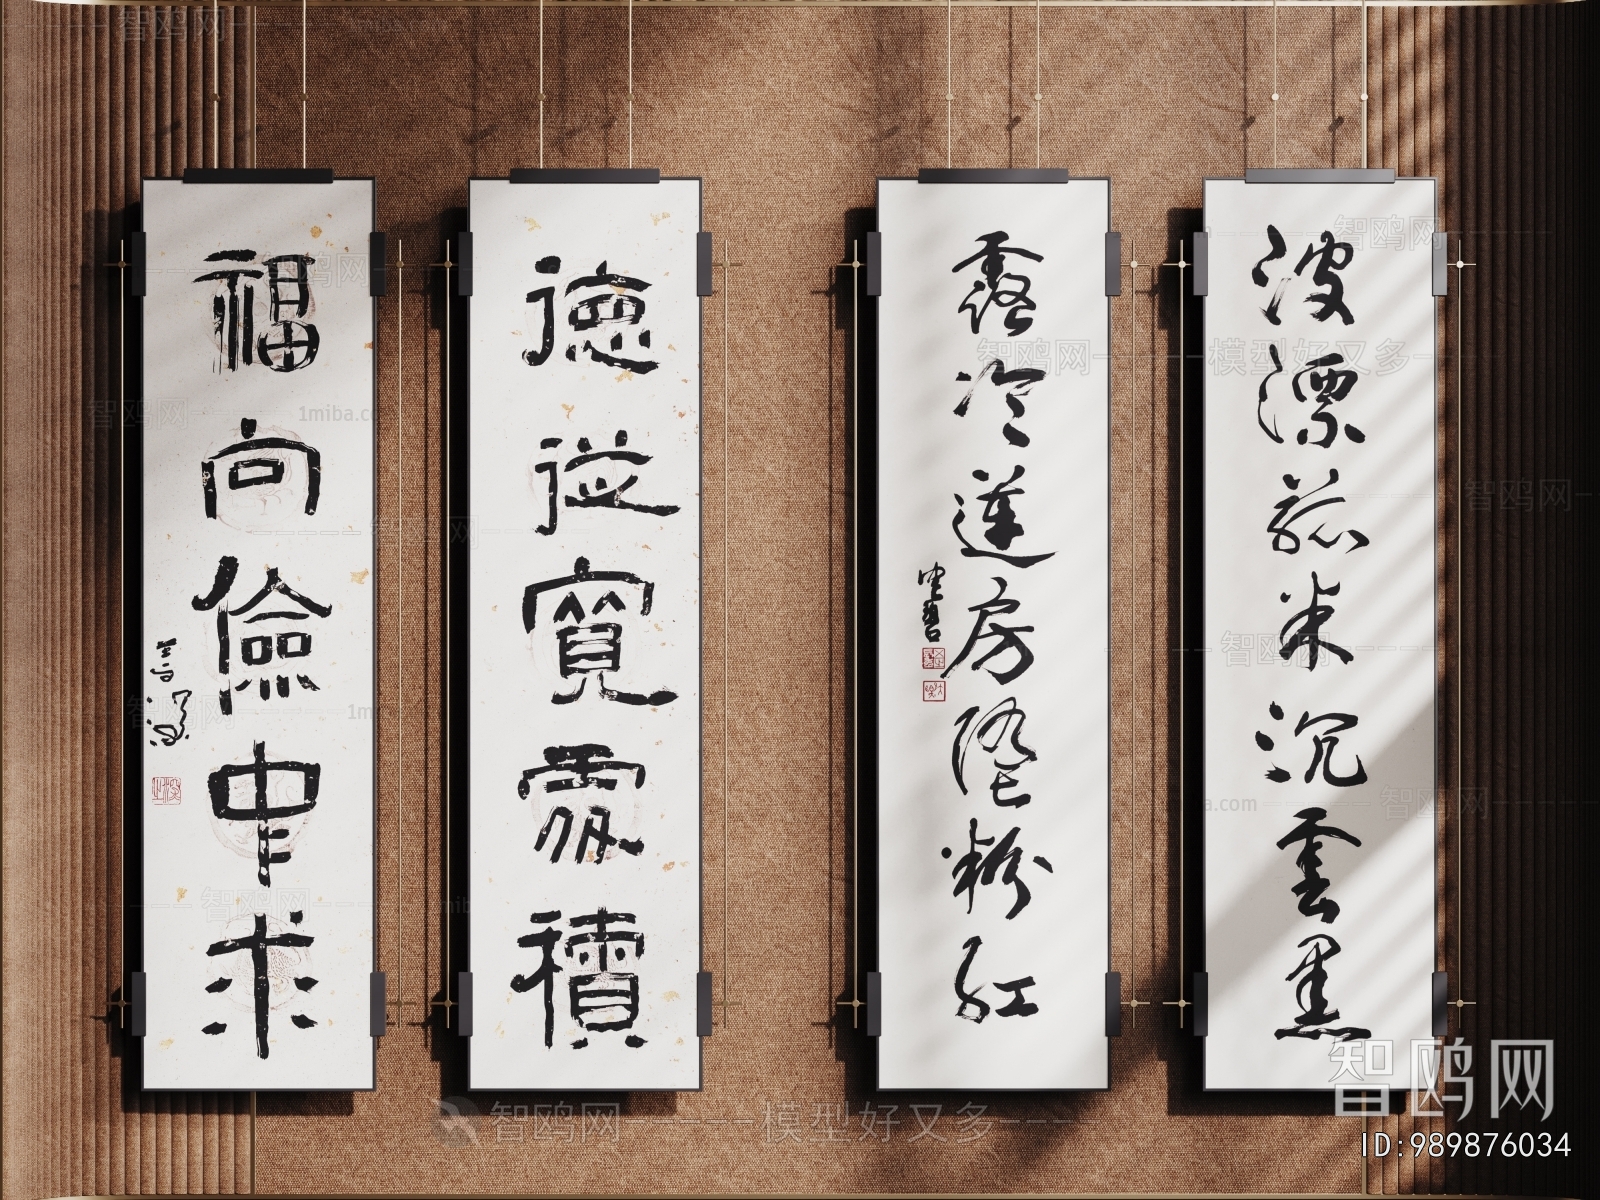 波漂菰米沉雲黑
露冷蓮房墜粉紅
德從寬處積
福向儉中求
智鸥网
ID:989876034
智鸥网 模型好又多